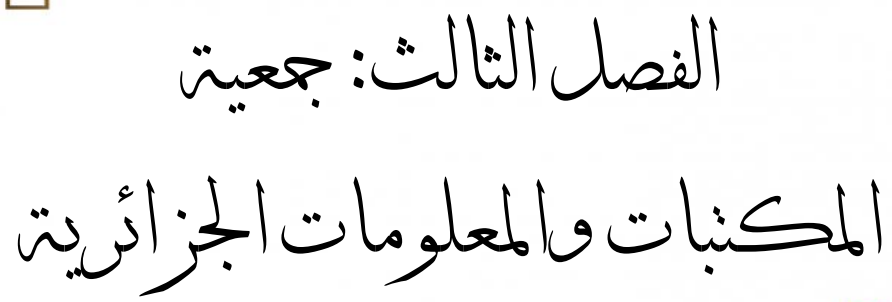 الفصل الثالث: جمعية
المكتبات والمعلومات الجزائرية